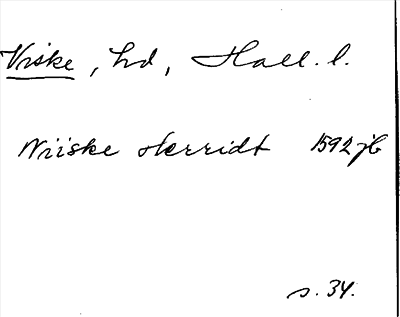 Viske, hd, Hall. l.
Wiiske Herridt 1592 jb
s. 34.